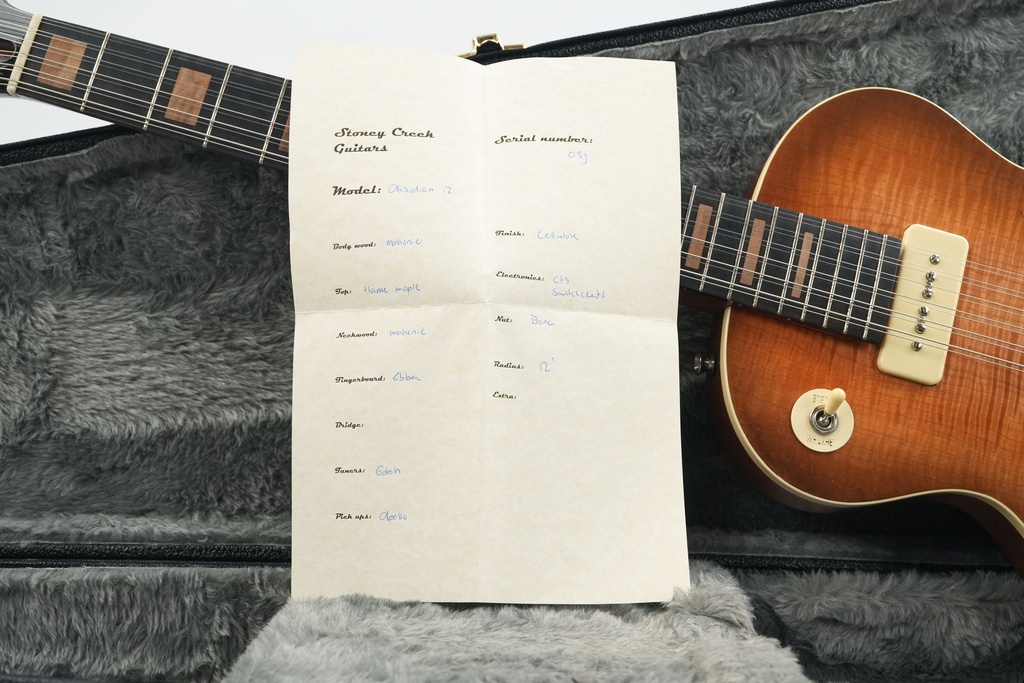 Stoney Creek
Guitars
Model: Obsidian 12
Body wood: mahonie
Top: Flame maple
Neckwood: mahonie
Fingerboard: Ebben
Bridge:
Tuners: Gotoh
Pick ups:
Serial number:
Finish: Cellulose
Electronics: CTS
Switchcraft
Nut: Bone
Radius: 12"
Extra: